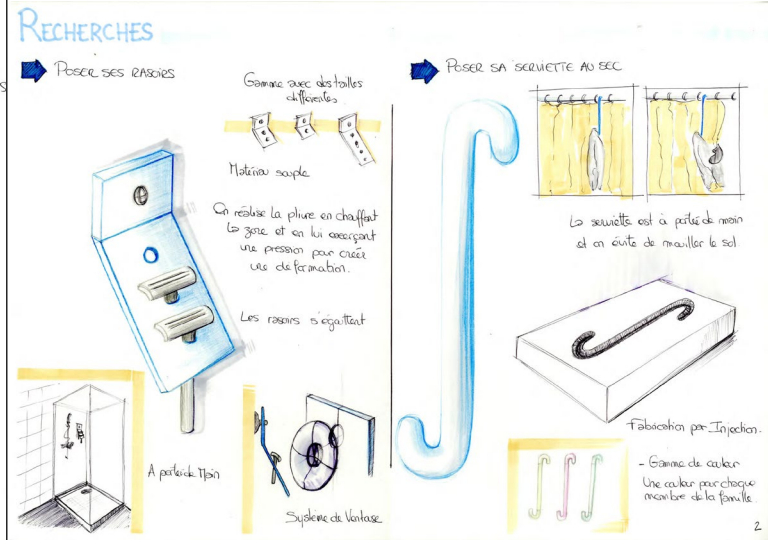 RECHERCHES
POSER SES RASOIRS
Gamme avec des tailles
différentes.
Matériau souple
On réalise la pliure en chauffant
la zone et en lui exerçant
une pression pour créer
une déformation.
Les rasoirs s'égouttent
A portée de Main
Système de Ventouse
POSER SA SERVIETTE AU SEC
La serviette est à portée de main
et on évite de mouiller le sol.
Fabrication par Injection.
- Gamme de couleur
Une couleur pour chaque
membre de la famille
2
s